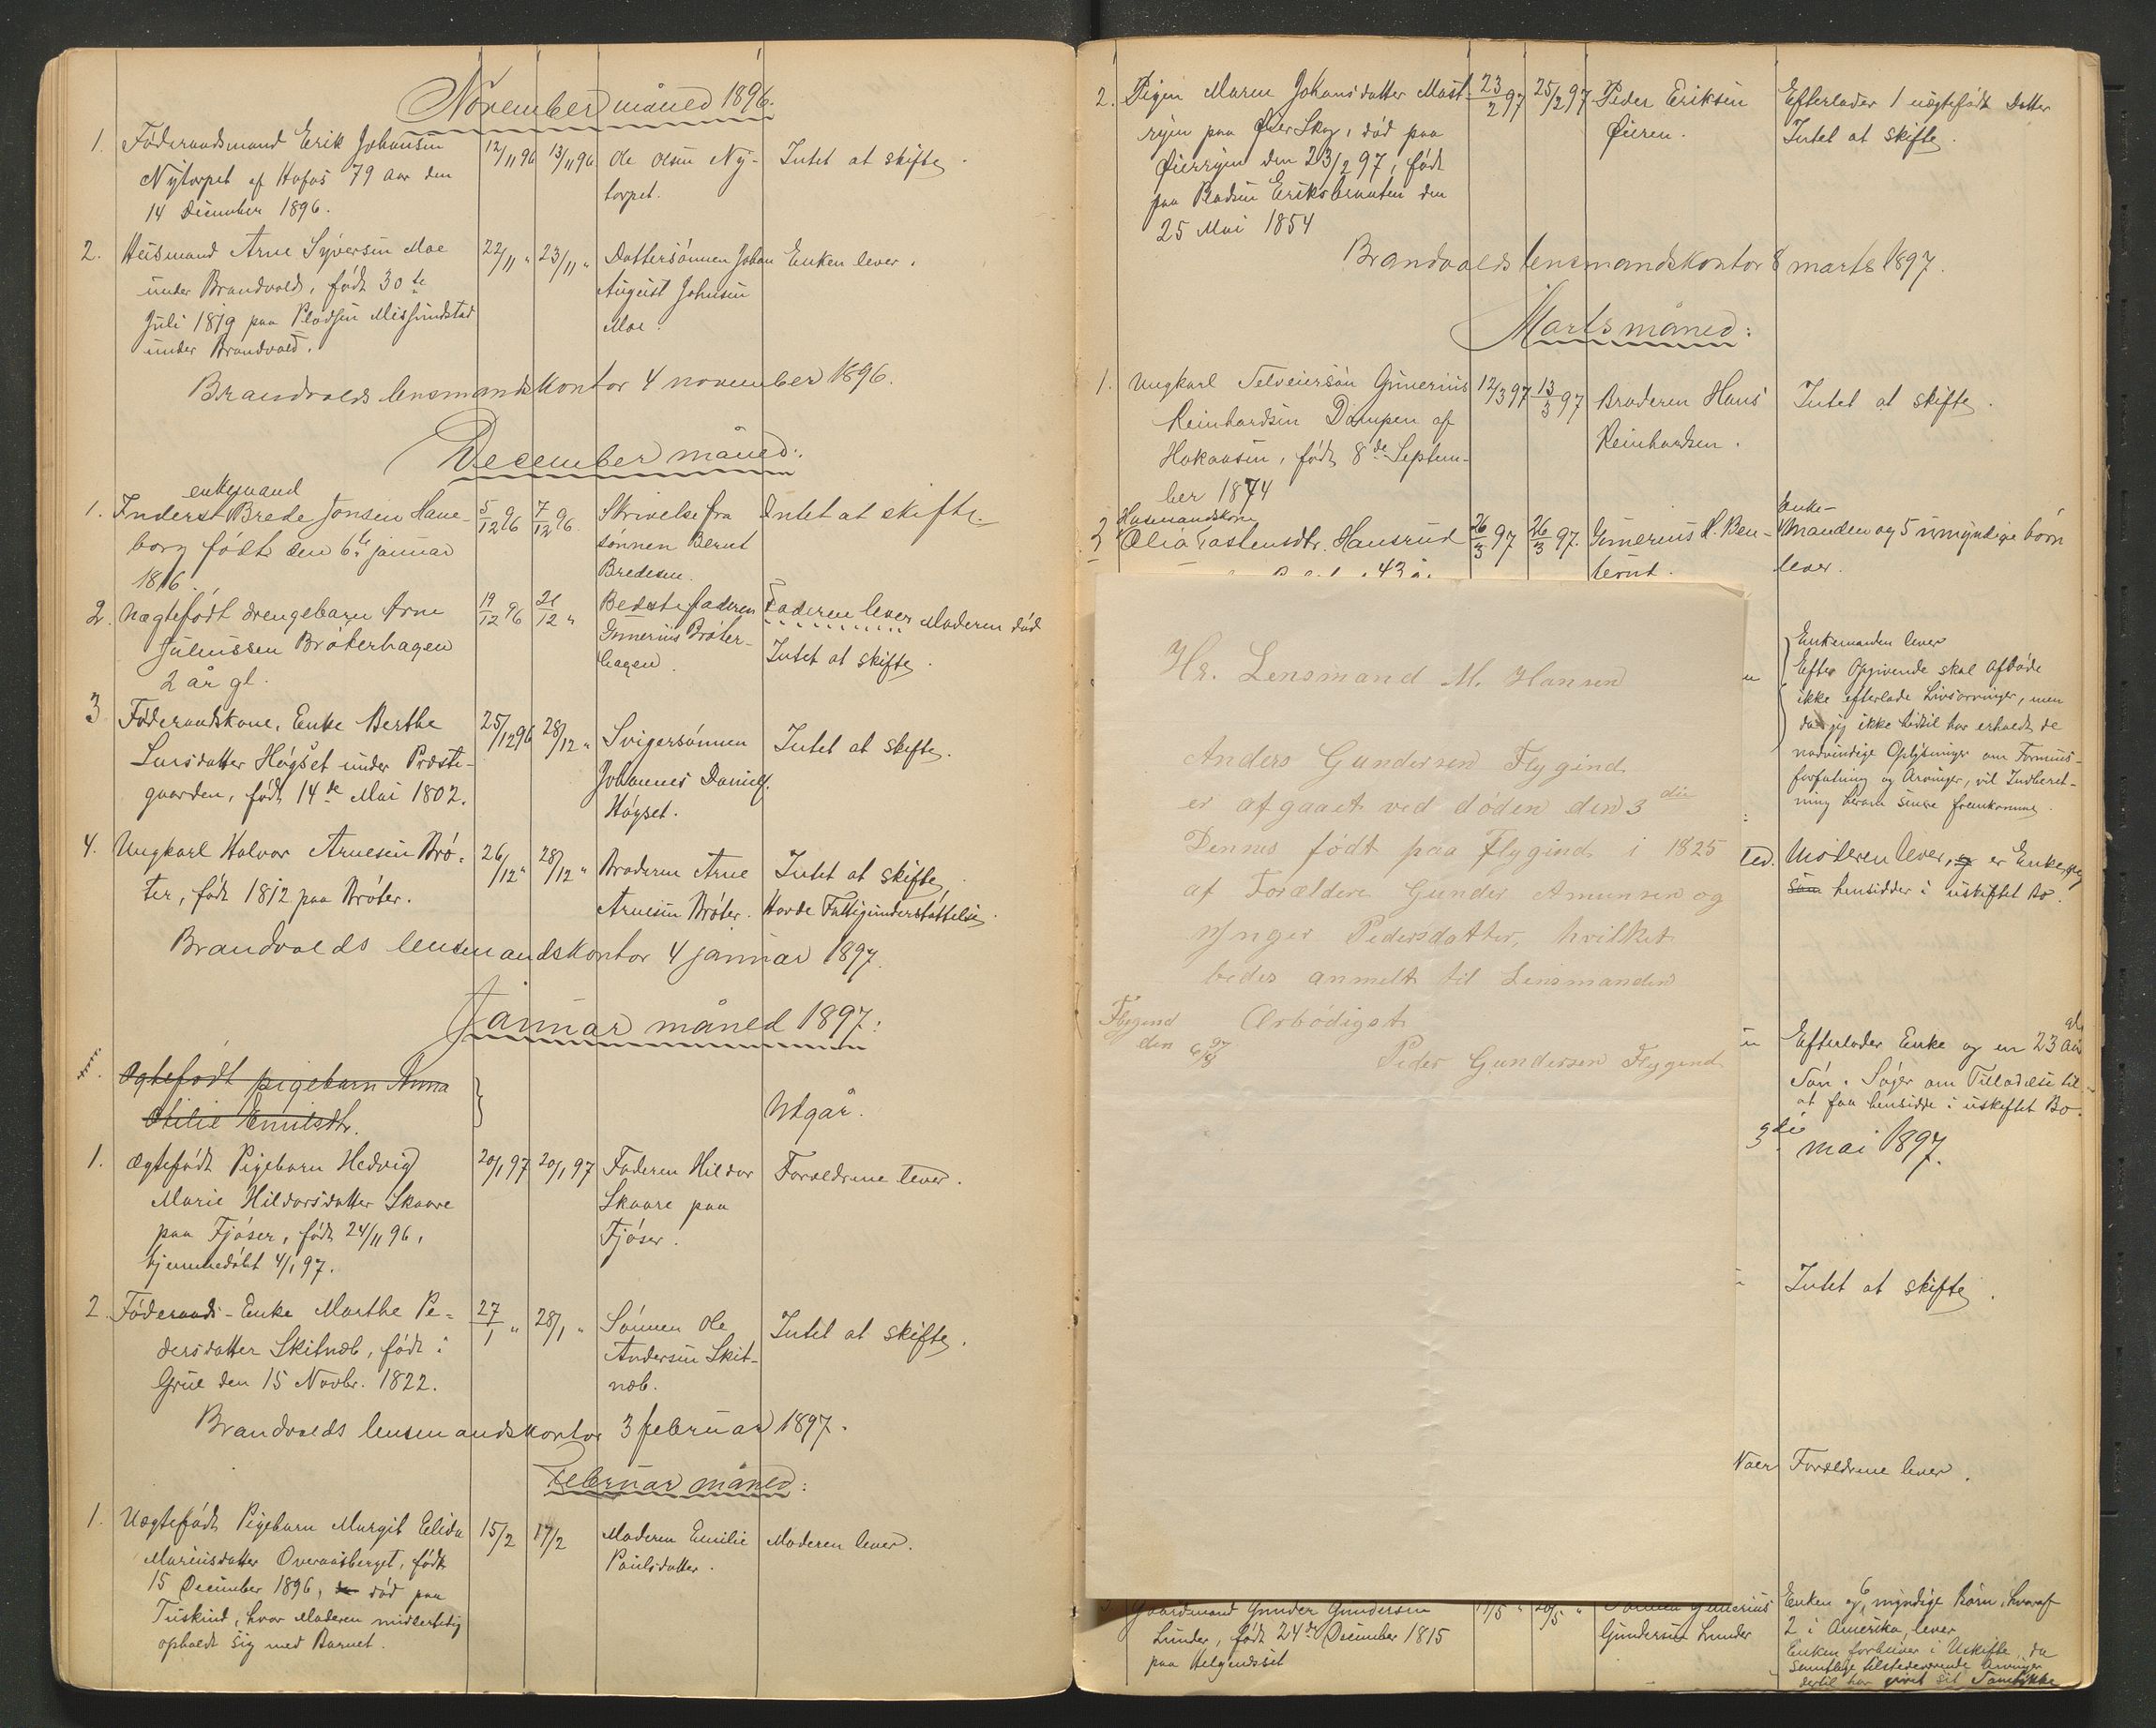 November måned 1896.
1. Föderaadsmand Erik Johansen 12/11 96 13/11 96 Ole Olsen Ny- Intet at skifte.
Nytorpet af Hofos 79 Aar den torpet.
14 December 1896.
2. Husmand Arne Syversen Moe 22/11 " 23/11 " Dattersönnen Johan Enken lever.
under Brandvold, født 30te August Johnsen
Juli 1819 paa Pladsen Missundstad Moe.
under Brandvold.
Brandvolds lensmandskontor 4 november 1896.
December måned:
enkemand
1. Inderst Brede Jonsen Hane- 5/12 96 7/12 96 Skrivelse fra Intet at skifte.
borg født den 6te januar sönnen Bernt
1816. Bredesen.
2. Uægtefödt drengebarn Arne 19/12 96 21/12 " Bedstefaderen Faderen lever Moderen död
Juliussen Bröterhagen Gunerius Bröter- Intet at skifte.
2 år gl. hagen.
3 Föderaadskone, Enke Berthe 25/12 96 28/12 " Svigersönnen Intet at skifte.
Larsdatter Högset under Præste- Johannes Danielsen
gaarden, født 14de Mai 1802. Högset.
4. Ungkarl Halvor Arnesen Brö- 26/12 " 28/12 " Broderen Arne Intet at skifte,
ter, født 1812 paa Bröter. Arnesen Bröter. Havde Fattigunderstöttelse.
Brandvolds lensmandskontor 4 januar 1897.
Januar måned 1897:
1. Ægtefödt pigebarn Anna
Otilie Emilsdtr. Utgår.
1. Ægtefödt Pigebarn Hedvig 20/1 97 20/1 97 Faderen Hildor Forældrene lever.
Marie Hildorsdatter Skaare Skaare paa
paa Fjöser, født 24/11 96, Fjöser.
hjemmedöbt 4/1 97.
2. Föderaads-Enke Marthe Pe- 27/1 " 28/1 " Sönnen Ole Intet at skifte.
dersdatter Skitnæb, født i Andersen Skit-
Grue den 15 Novbr. 1822. næb.
Brandvolds lensmandskontor 3 februar 1897.
Februar måned:
1. Uægtefödt Pigebarn Margit Elida 15/2 17/2 Moderen Emilie Moderen lever.
Mariusdatter Overaasberget, født Paulsdatter.
15 December 1896, död paa
Tuskind, hvor Moderen midlertidig
opholdt sig med Barnet.
2. Pigen Maren Johansdatter Mast- 23/2 97 25/2 97 Peder Eriksen Efterlader 1 uægtefödt Datter
ryen paa Öier Skog, död paa Öieren. Intet at skifte.
Öierryen den 23/2 97, født
paa Pladsen Eriksbraaten den
25 Mai 1854
Brandvolds lensmandskontor 8 marts 1897.
Marts måned:
1. Ungkarl Selveiersön Gunerius 12/3 97 13/3 97 Broderen Hans Intet at skifte.
Reinhardsen Dampen af Reinhardsen.
Hokaasen, født 8de Septem-
ber 1874
Husmandskone Enke-
2 Olia Tostensdtr. Hansrud 26/3 97 26/3 97. Gunerius H. Ben- manden og 5 umyndige börn
43 å. terut. lever.
Hr. Lensmand M. Hansen
Anders Gundersen Flygind
er afgaaet ved döden den 3die
Dennes födt paa Flygind i 1825
af Forældere Gunder Amunsen og
Ynger Pedersdatter, hvilket
bedes anmelt til Lensmanden
Flygend Ærbödigst
den 6/8 97
Peder Gundersen Flygend
Enkemanden lever
Efter Opgivende skal Afdöde
ikke efterlade Livsarvinger, men
da jeg ikke hidtil har erholdt de
nødvendige Oplysninger om Formues-
forfatning og Arvinger, vil Indberet-
ning herom senere fremkomme.
ted. Moderen lever, er Enke, og
som hensidder i uskiftet Bo.
Efterlader Enke og en 23 Aar gl.
Sön. Söger om Tilladelse til
at faa hensidde i uskiftet Bo.
3die mai 1897.
Intet at skifte.
Noer Forældrene lever.
Gaardmand Gunder Gundersen 17/5 " 20/5 " Sönnen Gunerius Enken og 6 myndige Börn, hvoraf
Lunder, født 24de December 1815 Gundersen Lunder 2 i Amerika, lever
paa Helgendsset Enken forbliver i Uskifte, da
samtlige tilstedeværende Arvinger
dertil har givet sit Samtykke